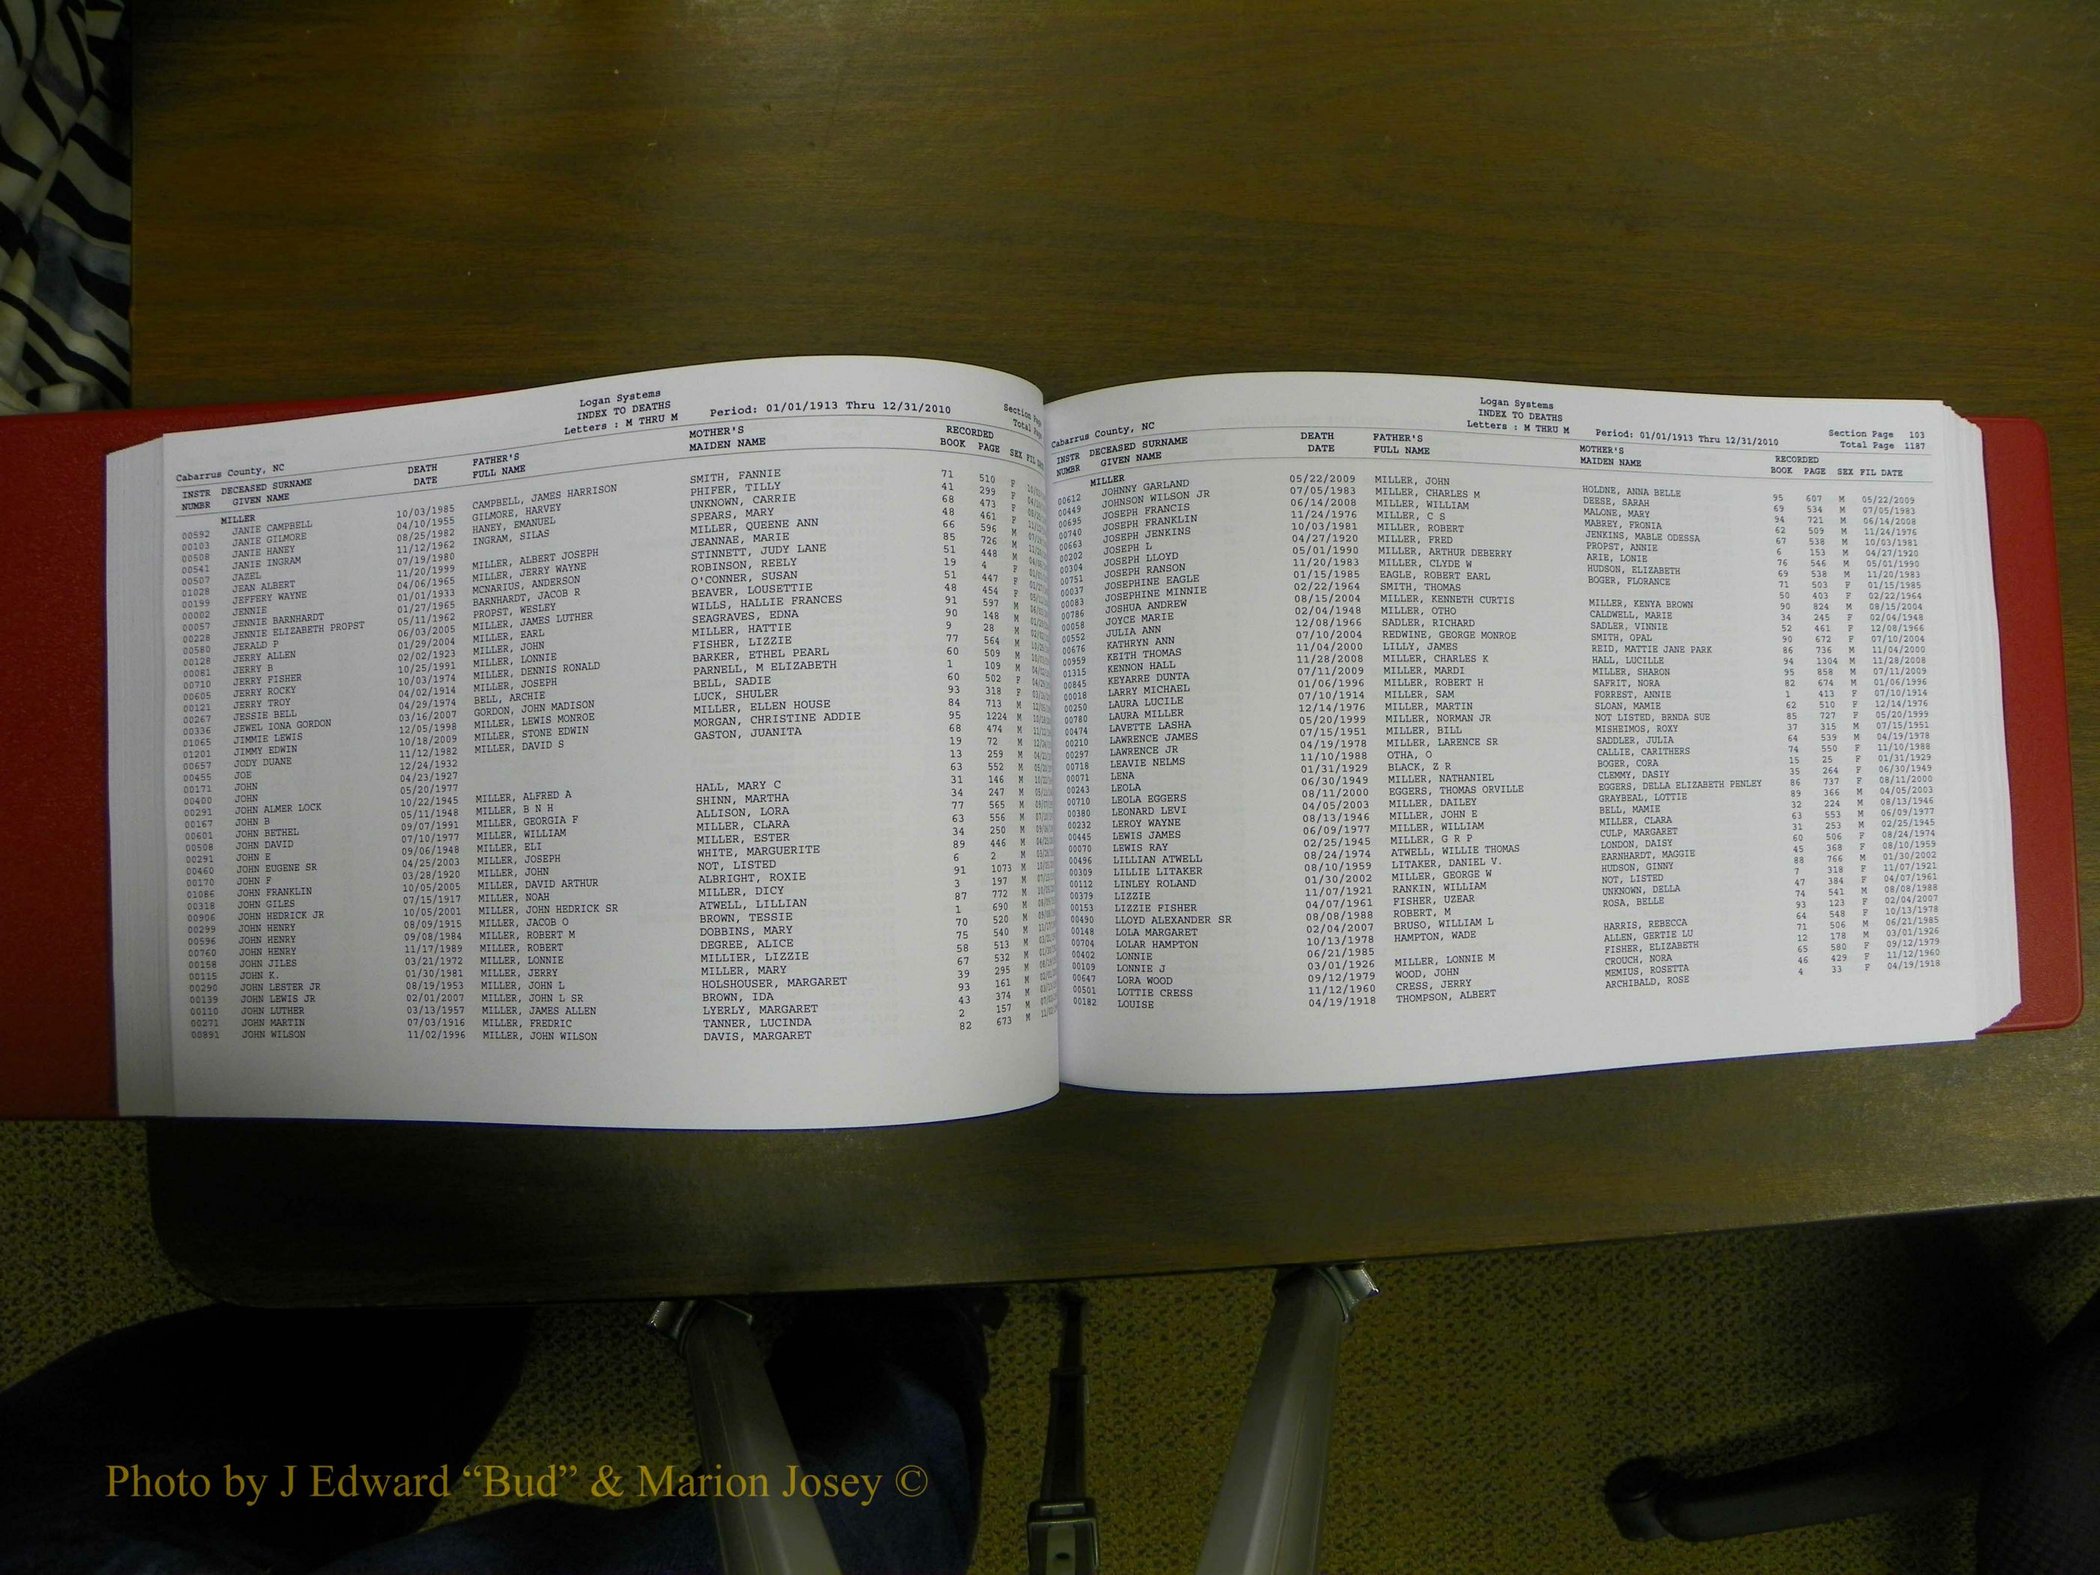 Logan Systems
INDEX TO DEATHS
Cabarrus County, NC Letters : M THRU M Period: 01/01/1913 Thru 12/31/2010 Section
Total
INSTR DECEASED SURNAME DEATH FATHER'S MOTHER'S RECORDED
NUMBR GIVEN NAME DATE FULL NAME MAIDEN NAME BOOK PAGE SEX FIL
MILLER
00592 JANIE CAMPBELL 10/03/1985 CAMPBELL, JAMES HARRISON SMITH, FANNIE 71 510 F
00103 JANIE GILMORE 04/10/1955 GILMORE, HARVEY PHIFER, TILLY 41 299 F
00508 JANIE HANEY 08/25/1982 HANEY, EMANUEL UNKNOWN, CARRIE 68 473 F
00541 JANIE INGRAM 11/12/1962 INGRAM, SILAS SPEARS, MARY 48 461 F
00507 JAZEL 07/19/1980 MILLER, QUEENE ANN 66 596 M
01028 JEAN ALBERT 11/20/1999 MILLER, ALBERT JOSEPH JEANNAE, MARIE 85 726 M
00199 JEFFERY WAYNE 04/06/1965 MILLER, JERRY WAYNE STINNETT, JUDY LANE 51 448 M
00002 JENNIE 01/01/1933 MCNARIUS, ANDERSON ROBINSON, REELY 19 4 F
00057 JENNIE BARNHARDT 01/27/1965 BARNHARDT, JACOB R O'CONNER, SUSAN 51 447 F
00228 JENNIE ELIZABETH PROPST 05/11/1962 PROPST, WESLEY BEAVER, LOUSETTIE 48 454 F
00580 JERALD P 06/03/2005 MILLER, JAMES LUTHER WILLS, HALLIE FRANCES 91 597 M
00128 JERRY ALLEN 01/29/2004 MILLER, EARL SEAGRAVES, EDNA 90 148 M
00081 JERRY B 02/02/1923 MILLER, JOHN MILLER, HATTIE 9 28 M
00710 JERRY FISHER 10/25/1991 MILLER, LONNIE FISHER, LIZZIE 77 564 M
00605 JERRY ROCKY 10/03/1974 MILLER, DENNIS RONALD BARKER, ETHEL PEARL 60 509 M
00121 JERRY TROY 04/02/1914 MILLER, JOSEPH PARNELL, M ELIZABETH 1 109 M
00267 JESSIE BELL 04/29/1974 BELL, ARCHIE BELL, SADIE 60 502 F
00336 JEWEL IONA GORDON 03/16/2007 GORDON, JOHN MADISON LUCK, SHULER 93 318 F
01065 JIMMIE LEWIS 12/05/1998 MILLER, LEWIS MONROE MILLER, ELLEN HOUSE 84 713 M
01201 JIMMY EDWIN 10/18/2009 MILLER, STONE EDWIN MORGAN, CHRISTINE ADDIE 95 1224 M
00657 JODY DUANE 11/12/1982 MILLER, DAVID S GASTON, JUANITA 68 474 M
00455 JOE 12/24/1932 19 72 M
00171 JOHN 04/23/1927 13 259 M
00400 JOHN 05/20/1977 63 552 M
00291 JOHN ALMER LOCK 10/22/1945 MILLER, ALFRED A HALL, MARY C 31 146 M
00167 JOHN B 05/11/1948 MILLER, B N H SHINN, MARTHA 34 247 M
00601 JOHN BETHEL 09/07/1991 MILLER, GEORGIA F ALLISON, LORA 77 565 M
00508 JOHN DAVID 07/10/1977 MILLER, WILLIAM MILLER, CLARA 63 556 M
00291 JOHN E 09/06/1948 MILLER, ELI MILLER, ESTER 34 250 M
00460 JOHN EUGENE SR 04/25/2003 MILLER, JOSEPH WHITE, MARGUERITE 89 446 M
00170 JOHN F 03/28/1920 MILLER, JOHN NOT, LISTED 6 2 M
01086 JOHN FRANKLIN 10/05/2005 MILLER, DAVID ARTHUR ALBRIGHT, ROXIE 91 1073 M
00318 JOHN GILES 07/15/1917 MILLER, NOAH MILLER, DICY 3 197 M
00906 JOHN HEDRICK JR 10/05/2001 MILLER, JOHN HEDRICK SR ATWELL, LILLIAN 87 772 M
00299 JOHN HENRY 08/09/1915 MILLER, JACOB O BROWN, TESSIE 1 690 M
00596 JOHN HENRY 09/08/1984 MILLER, ROBERT M DOBBINS, MARY 70 520 M
00760 JOHN HENRY 11/17/1989 MILLER, ROBERT DEGREE, ALICE 75 540 M
00158 JOHN JILES 03/21/1972 MILLER, LONNIE MILLIER, LIZZIE 58 513 M
00115 JOHN K. 01/30/1981 MILLER, JERRY MILLER, MARY 67 532 M
00290 JOHN LESTER JR 08/19/1953 MILLER, JOHN L HOLSHOUSER, MARGARET 39 295 M
00139 JOHN LEWIS JR 02/01/2007 MILLER, JOHN L SR BROWN, IDA 93 161 M
00110 JOHN LUTHER 03/13/1957 MILLER, JAMES ALLEN LYERLY, MARGARET 43 374 M
00271 JOHN MARTIN 07/03/1916 MILLER, FREDRIC TANNER, LUCINDA 2 157 M
00891 JOHN WILSON 11/02/1996 MILLER, JOHN WILSON DAVIS, MARGARET 82 673 M
Logan Systems
INDEX TO DEATHS
Cabarrus County, NC Letters : M THRU M Period: 01/01/1913 Thru 12/31/2010 Section Page 103
Total Page 1187
INSTR DECEASED SURNAME DEATH FATHER'S MOTHER'S RECORDED
NUMBR GIVEN NAME DATE FULL NAME MAIDEN NAME BOOK PAGE SEX FIL DATE
MILLER
00612 JOHNNY GARLAND 05/22/2009 MILLER, JOHN HOLDNE, ANNA BELLE 95 607 M 05/22/2009
00449 JOHNSON WILSON JR 07/05/1983 MILLER, CHARLES M DEESE, SARAH 69 534 M 07/05/1983
00695 JOSEPH FRANCIS 06/14/2008 MILLER, WILLIAM MALONE, MARY 94 721 M 06/14/2008
00740 JOSEPH FRANKLIN 11/24/1976 MILLER, C S MABREY, FRONIA 62 509 M 11/24/1976
00663 JOSEPH JENKINS 10/03/1981 MILLER, ROBERT JENKINS, MABLE ODESSA 67 538 M 10/03/1981
00202 JOSEPH L 04/27/1920 MILLER, FRED PROPST, ANNIE 6 153 M 04/27/1920
00304 JOSEPH LLOYD 05/01/1990 MILLER, ARTHUR DEBERRY ARIE, LONIE 76 546 M 05/01/1990
00751 JOSEPH RANSON 11/20/1983 MILLER, CLYDE W HUDSON, ELIZABETH 69 538 M 11/20/1983
00037 JOSEPHINE EAGLE 01/15/1985 EAGLE, ROBERT EARL BOGER, FLORANCE 71 503 F 01/15/1985
00083 JOSEPHINE MINNIE 02/22/1964 SMITH, THOMAS 50 403 F 02/22/1964
00786 JOSHUA ANDREW 08/15/2004 MILLER, KENNETH CURTIS MILLER, KENYA BROWN 90 824 M 08/15/2004
00058 JOYCE MARIE 02/04/1948 MILLER, OTHO CALDWELL, MARIE 34 245 F 02/04/1948
00552 JULIA ANN 12/08/1966 SADLER, RICHARD SADLER, VINNIE 52 461 F 12/08/1966
00676 KATHRYN ANN 07/10/2004 REDWINE, GEORGE MONROE SMITH, OPAL 90 672 F 07/10/2004
00959 KEITH THOMAS 11/04/2000 LILLY, JAMES REID, MATTIE JANE PARK 86 736 M 11/04/2000
01315 KENNON HALL 11/28/2008 MILLER, CHARLES K HALL, LUCILLE 94 1304 M 11/28/2008
00845 KEYARRE DUNTA 07/11/2009 MILLER, MARDI MILLER, SHARON 95 858 M 07/11/2009
00018 LARRY MICHAEL 01/06/1996 MILLER, ROBERT H SAFRIT, NORA 82 674 M 01/06/1996
00250 LAURA LUCILE 07/10/1914 MILLER, SAM FORREST, ANNIE 1 413 F 07/10/1914
00780 LAURA MILLER 12/14/1976 MILLER, MARTIN SLOAN, MAMIE 62 510 F 12/14/1976
00474 LAVETTE LASHA 05/20/1999 MILLER, NORMAN JR NOT LISTED, BRNDA SUE 85 727 F 05/20/1999
00210 LAWRENCE JAMES 07/15/1951 MILLER, BILL MISHEIMOS, ROXY 37 315 M 07/15/1951
00297 LAWRENCE JR 04/19/1978 MILLER, LARENCE SR SADDLER, JULIA 64 539 M 04/19/1978
00718 LEAVIE NELMS 11/10/1988 OTHA, O CALLIE, CARITHERS 74 550 F 11/10/1988
00071 LENA 01/31/1929 BLACK, Z R BOGER, CORA 15 25 F 01/31/1929
00243 LEOLA 06/30/1949 MILLER, NATHANIEL CLEMMY, DASIY 35 264 F 06/30/1949
00710 LEOLA EGGERS 08/11/2000 EGGERS, THOMAS ORVILLE EGGERS, DELLA ELIZABETH PENLEY 86 737 F 08/11/2000
00380 LEONARD LEVI 04/05/2003 MILLER, DAILEY GRAYBEAL, LOTTIE 89 366 M 04/05/2003
00232 LEROY WAYNE 08/13/1946 MILLER, JOHN E BELL, MAMIE 32 224 M 08/13/1946
00445 LEWIS JAMES 06/09/1977 MILLER, WILLIAM MILLER, CLARA 63 553 M 06/09/1977
00070 LEWIS RAY 02/25/1945 MILLER, G R P CULP, MARGARET 31 253 M 02/25/1945
00496 LILLIAN ATWELL 08/24/1974 ATWELL, WILLIE THOMAS LONDON, DAISY 60 506 F 08/24/1974
00309 LILLIE LITAKER 08/10/1959 LITAKER, DANIEL V. EARNHARDT, MAGGIE 45 368 F 08/10/1959
00112 LINLEY ROLAND 01/30/2002 MILLER, GEORGE W HUDSON, GINNY 88 766 M 01/30/2002
00379 LIZZIE 11/07/1921 RANKIN, WILLIAM NOT, LISTED 7 318 F 11/07/1921
00153 LIZZIE FISHER 04/07/1961 FISHER, UZEAR UNKNOWN, DELLA 47 384 F 04/07/1961
00490 LLOYD ALEXANDER SR 08/08/1988 ROBERT, M ROSA, BELLE 74 541 M 08/08/1988
00148 LOLA MARGARET 02/04/2007 BRUSO, WILLIAM L 93 123 F 02/04/2007
00704 LOLAR HAMPTON 10/13/1978 HAMPTON, WADE HARRIS, REBECCA 64 548 F 10/13/1978
00402 LONNIE 06/21/1985 ALLEN, GERTIE LU 71 506 M 06/21/1985
00109 LONNIE J 03/01/1926 MILLER, LONNIE M FISHER, ELIZABETH 12 178 M 03/01/1926
00647 LORA WOOD 09/12/1979 WOOD, JOHN CROUCH, NORA 65 580 F 09/12/1979
00501 LOTTIE CRESS 11/12/1960 CRESS, JERRY MEMIUS, ROSETTA 46 429 F 11/12/1960
00182 LOUISE 04/19/1918 THOMPSON, ALBERT ARCHIBALD, ROSE 4 33 F 04/19/1918
Photo by J Edward “Bud” & Marion Josey ©